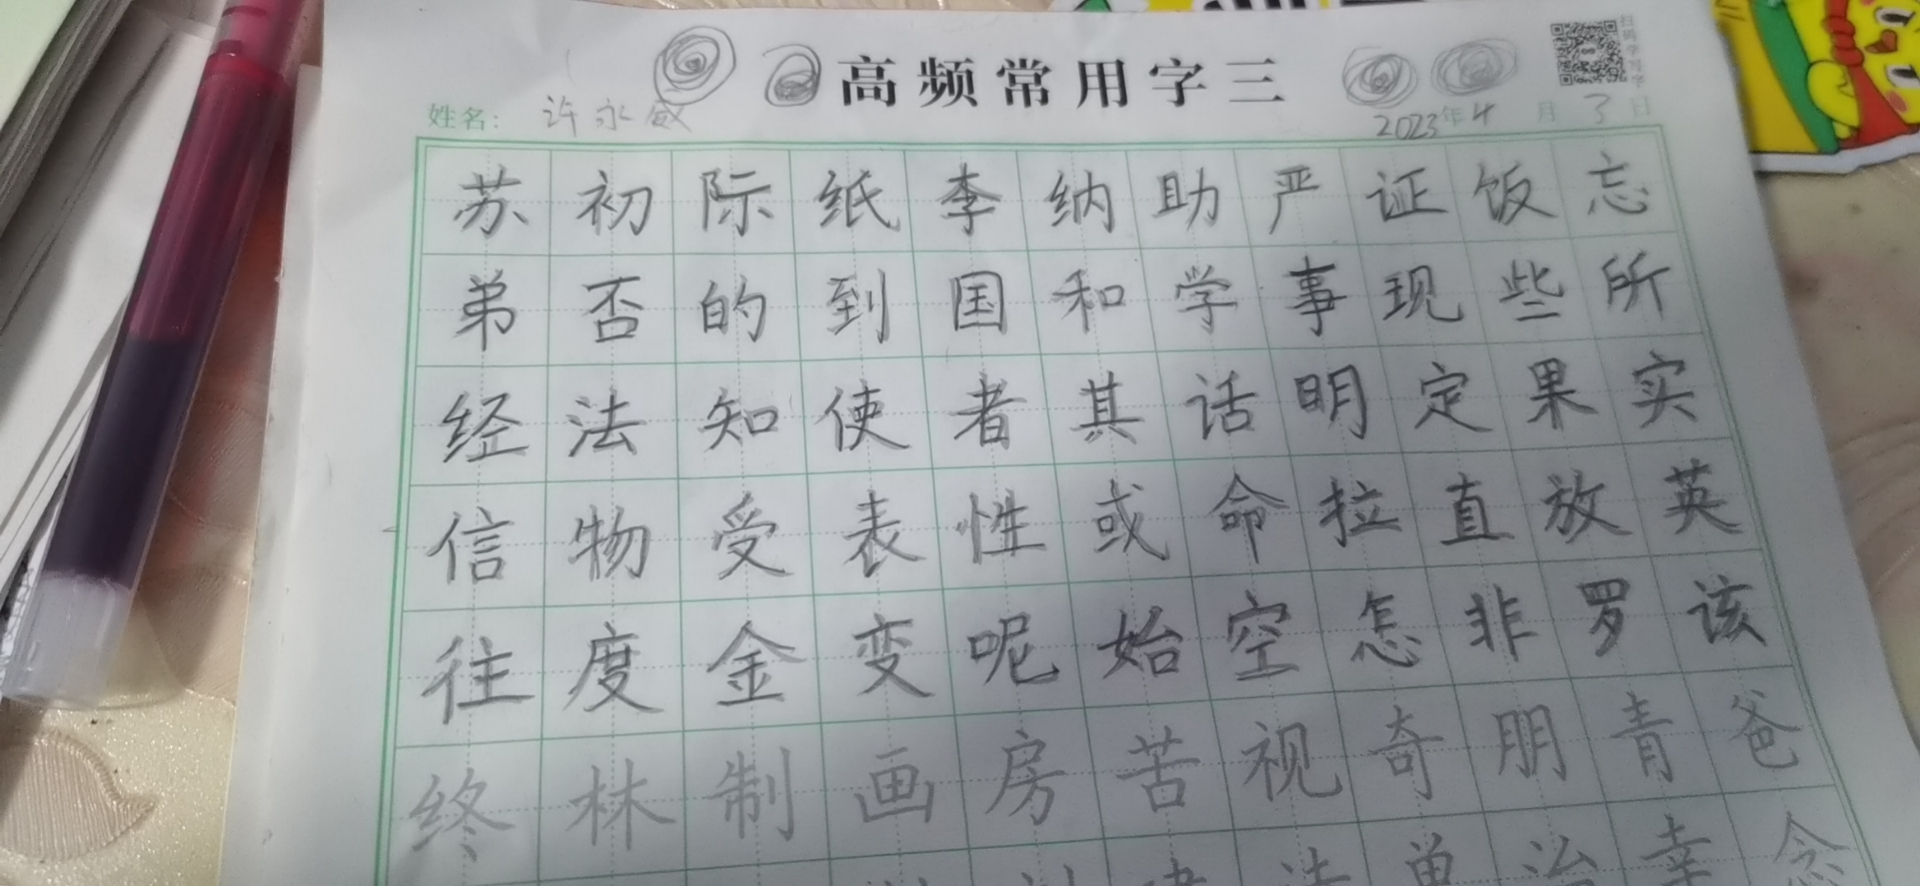 高频常用字三
姓名: 许永
2023年4月3日
苏初际纸李纳助严证饭忘
弟否的到国和学事现些所
经法知使者其话明定果实
信物受表性或命拉直放英
往度金变呢始空怎非罗该
终林制画房苦视奇朋青爸
单治幸念